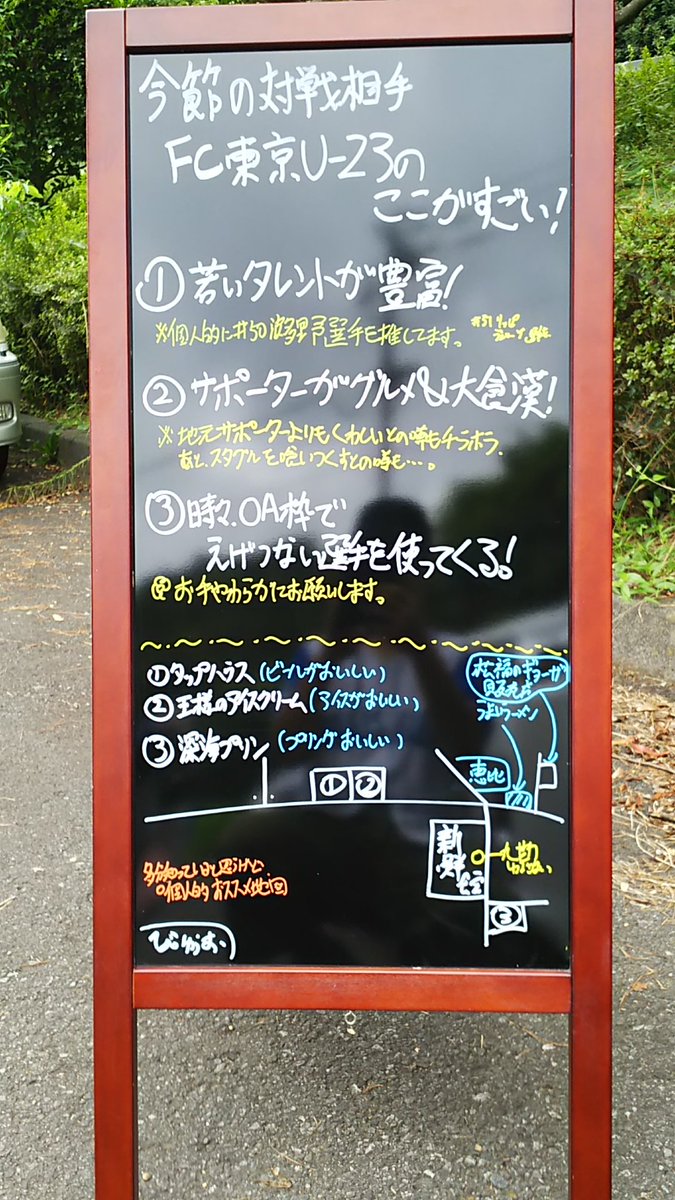 今節の対戦相手
FC東京U-23の
ここがすごい!
①若いタレントが豊富!
※個人的に#50波多野選手を推してます。
②サポーターがグルメ&大食漢!
※地元サポーターよりもくわしいとの噂もチラホラ。
あと、スタグルを喰いつくすとの噂も…。
③時々、OA枠で
えげつない選手を使ってくる!
お手やわらかにお願いします。
①タップハウス(ビールがおいしい)
②王様のアイスクリーム(アイスがおいしい)
③深海プリン(プリンがおいしい)
松福のギョーザ
販売店
ラーメン
恵比
①②
新鮮
③
個人的おススメ地図